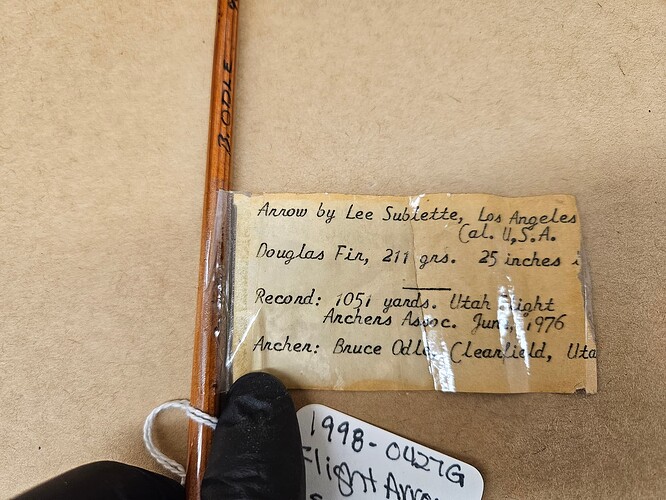 B. ODLE
Arrow by Lee Sublette, Los Angeles
Cal. U.S.A.
Douglas Fir, 211 grs. 25 inches
Record: 1051 yards. Utah
Archers Assoc. 1976
Archer: Bruce Clearfield, Uta
1998-0427G
Flight Arro